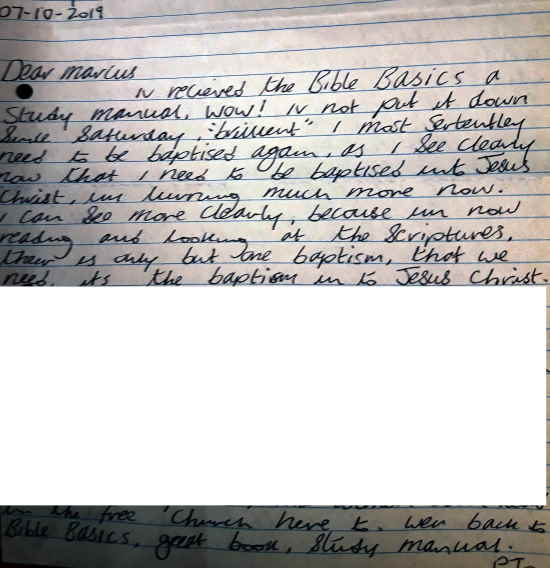 07-10-2019
Dear marcus
iv recieved the Bible Basics a
Study manual, wow! iv not put it down
Since Saturday, "brillient" I most Sertentley
need to be baptised again, as I See clearly
now that I need to be baptised into Jesus
Christ, im lurning much more now.
I can See more clearly, because im now
reading and looking at the Scriptures,
their is only but one baptism, that we
need, its the baptism in to Jesus Christ.
in the free Church here to. wen back to
Bible Basics, great book, Study manual.
PTO